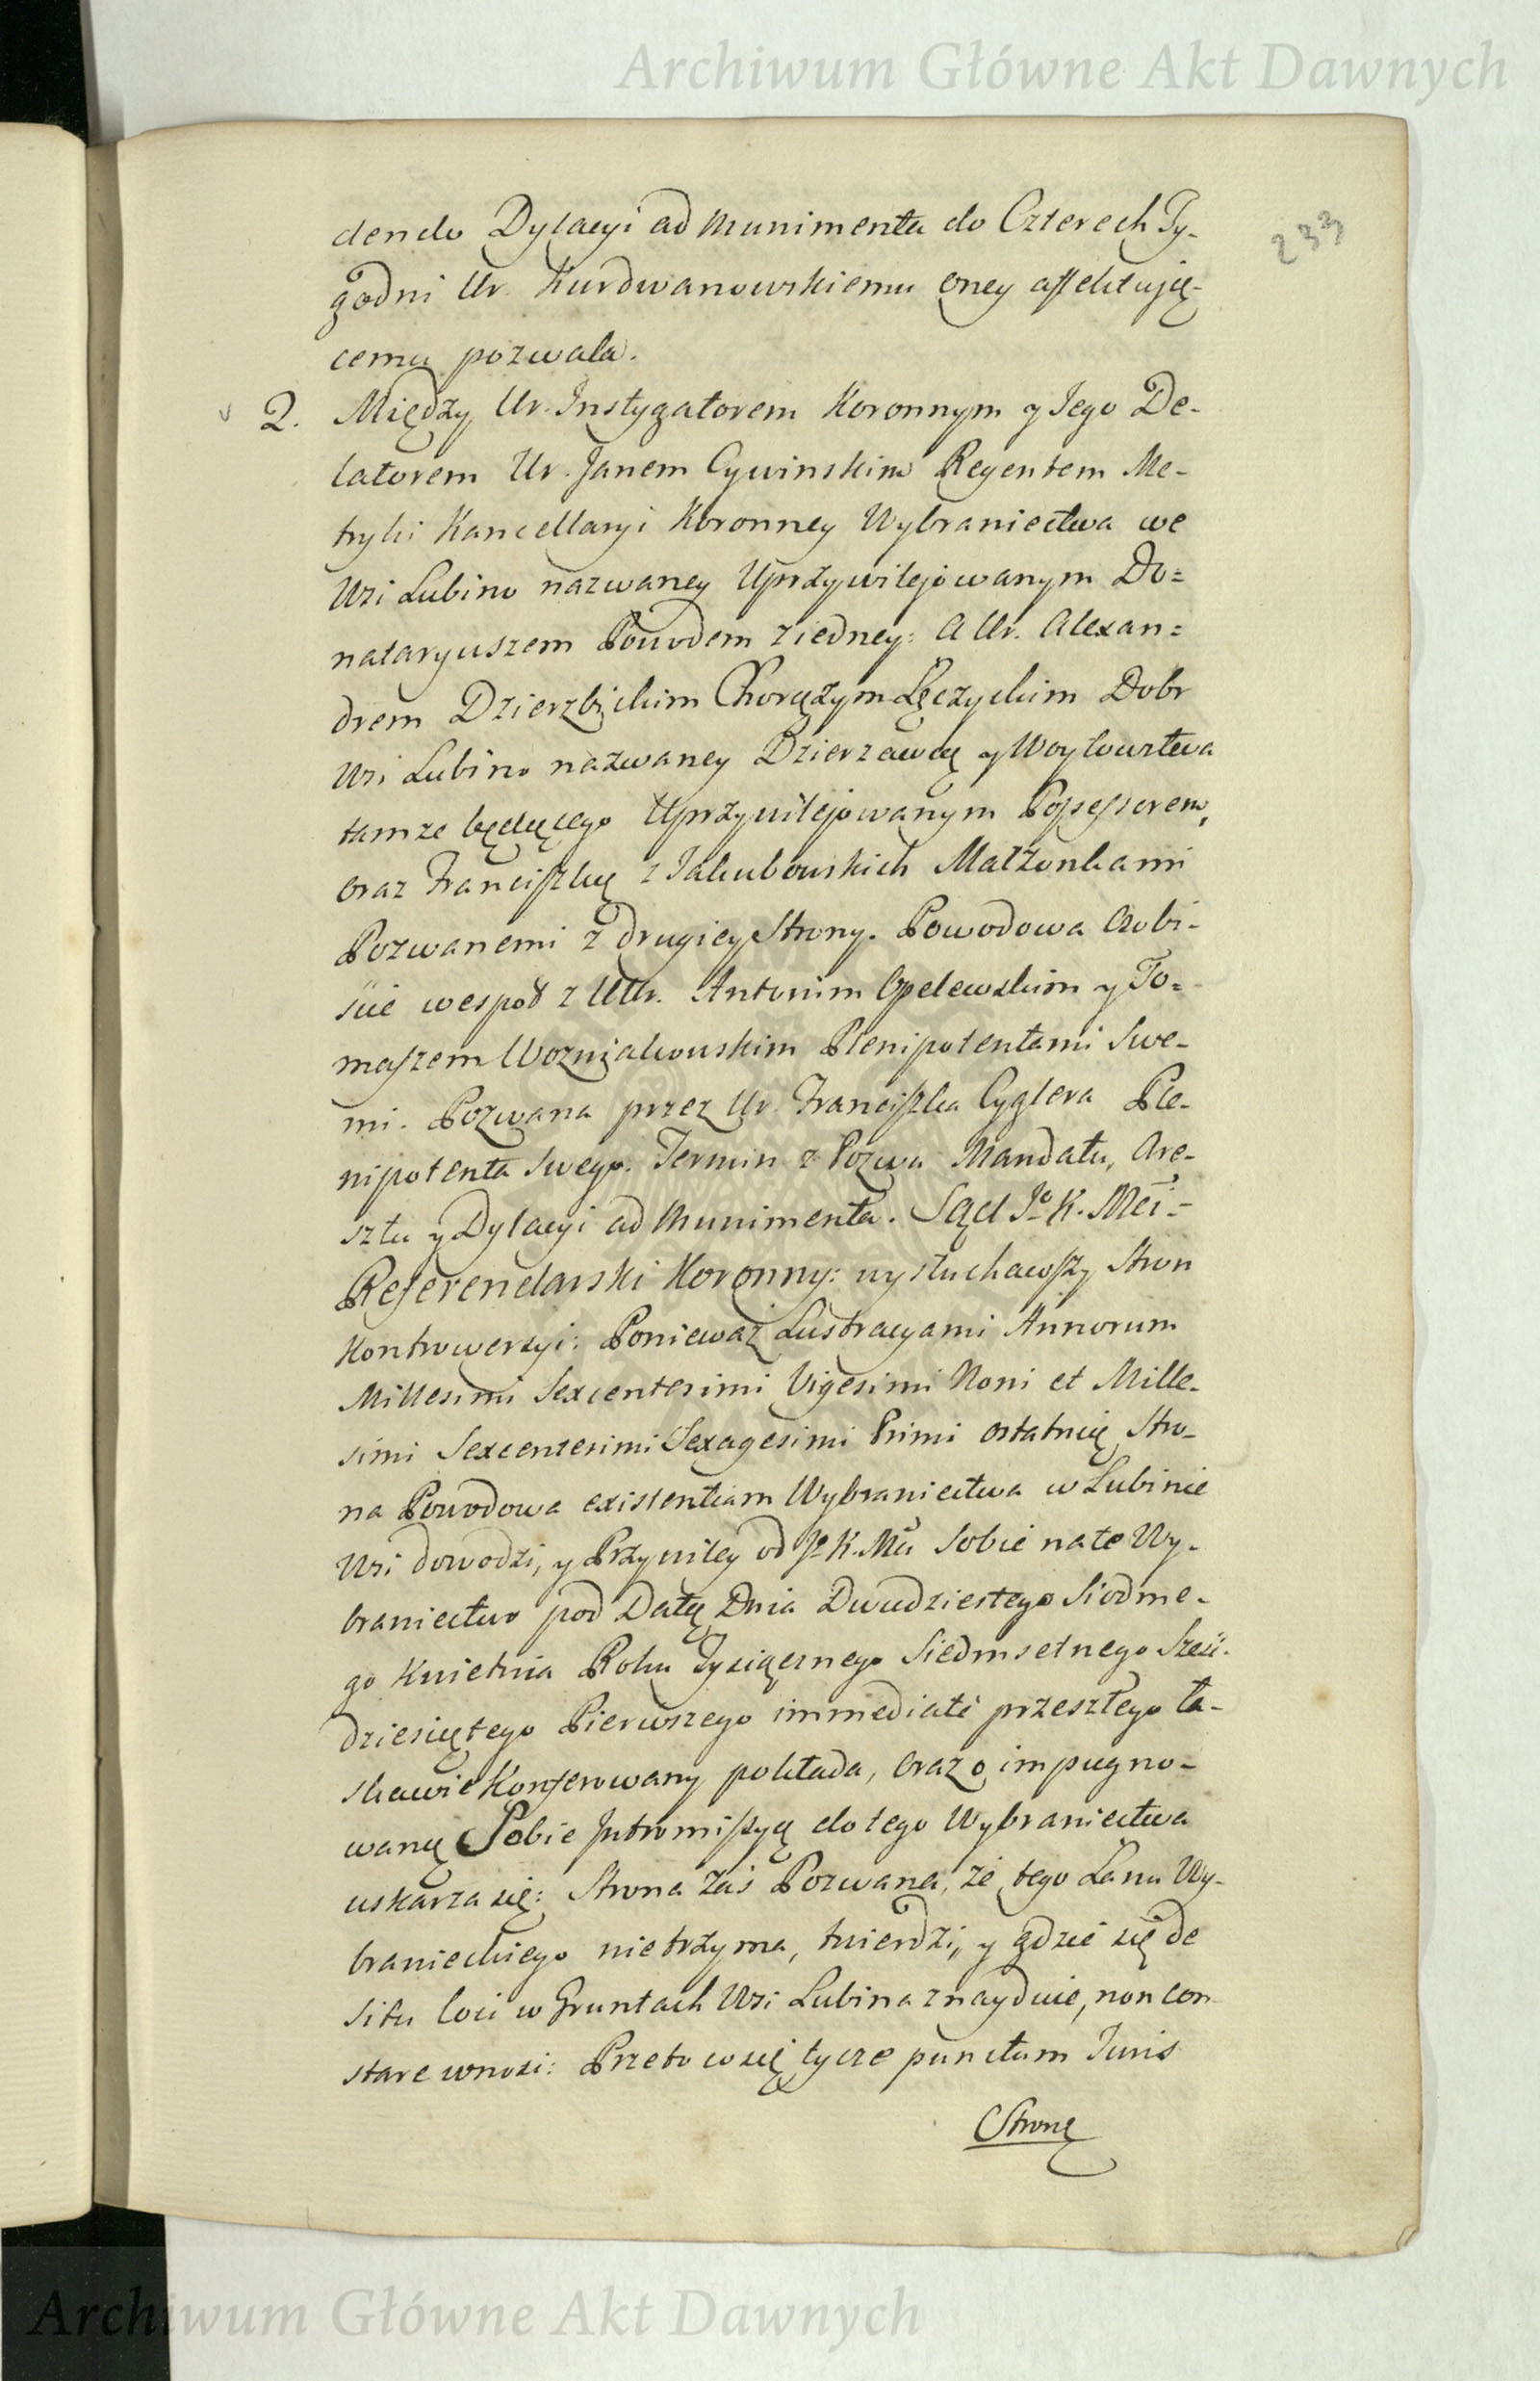 Archiwum Główne Akt Dawnych
233
dendo Dylacyi ad Munimenta do Czterech Ty-
godni Ur. Kurdwanowskiemu oney affektuią-
cemu pozwala.
2. Między Ur. Instygatorem Koronnym y Jego De-
latorem Ur. Janem Cywinskim Regentem Me-
tryki Kancellaryi Koronney Wybraniectwa we
Wsi Lubino nazwaney Uprzywilejowanym Do=
nataryuszem Powodem z iedney: a Ur. Alexan=
drem Dzierzbickim Chorążym Łęczyckim Dobr
Wsi Lubino nazwaney Dzierzawcą y Woytowstwa
tamze będącego Uprzywilejowanym Possessorem,
oraz Franciszką z Jakubowskich Małżonkami
Pozwanemi z drugiey Strony. Powodowa Osobi-
ście wespoł z UUr. Antonim Opelewskim y To=
maszem Wozniakowskim Plenipotentami Swe-
mi. Pozwana przez Ur. Franciszka Cyglera Ple-
nipotenta Swego. Termin z Pozwu Mandatu, Are-
sztu y Dylacyi ad Munimenta. Sąd Jº K. Mci=
Referendarski Koronny: wysłuchawszy Stron
Kontrowersyi: Ponieważ Lustracyami Annorum
Millesimi Sexcentesimi Vigesimi Noni et Mille-
simi Sexcentesimi Sexagesimi Primi ostatnię Stro-
na Powodowa existentiam Wybraniectwa w Lubinie
Wsi dowodzi, y Przywiley od Jº K. Mci Sobie na te Wy-
braniectwo pod Datą Dnia Dwudziestego Siodme-
go Kwietnia Roku Tysiącznego Siedmsetnego Sześć-
dziesiątego Pierwszego immediate przeszłego ła-
skawie Konferowany pokłada, oraz o impugno-
waną Sobie Intromissyą do tego Wybraniectwa
uskarza się: Strona zaś Pozwana, że tego Łanu Wy-
branieckiego nietrzyma, twierdzi, y gdzie się de
situ loci w Gruntach Wsi Lubina znayduie, non con
stare wnosi: Przeto co się tycze punctum Juris
Stronę
Archiwum Główne Akt Dawnych